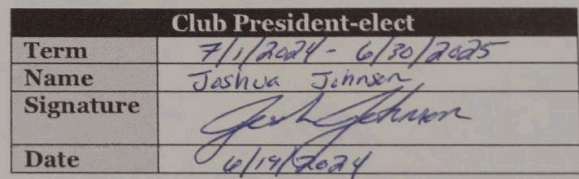 Club President-elect
Term 7/1/2024 - 6/30/2025
Name Joshua Johnson
Signature Josh Johnson
Date 6/19/2024